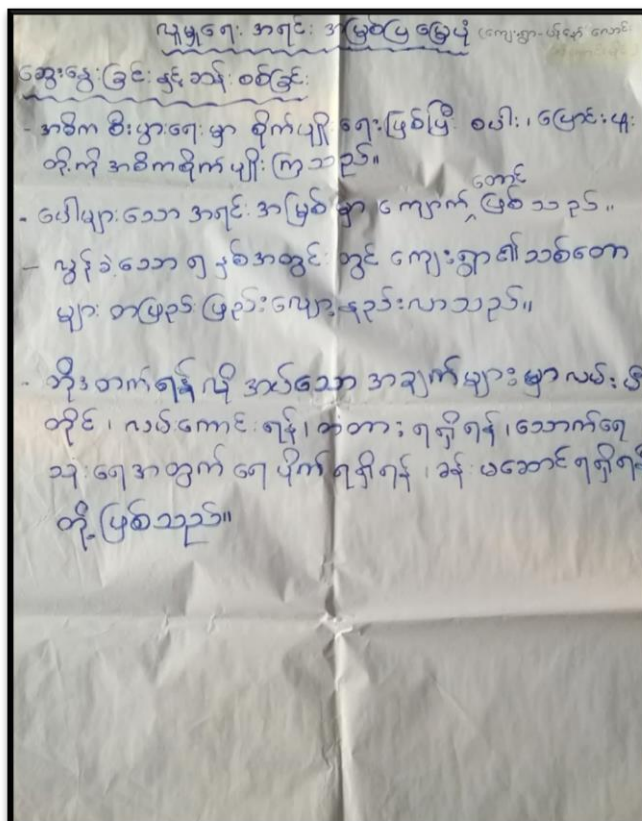 လူမှုရေး အရင်း အမြစ်ပြ မြေပုံ (ကျေးရွာ-
ဆွေးနွေးခြင်း နှင့် ဆန်းစစ်ခြင်း
- အဓိက စီးပွားရေး မှာ စိုက်ပျိုးရေးဖြစ်ပြီး စပါး၊ ပြောင်းဖူး
တို့ကို အဓိကစိုက်ပျိုး ကြသည်။
- ပေါများသော အရင်း အမြစ် မှာ ကျောက်တောင် ဖြစ်သည်။
- လွန်ခဲ့သော ၅ နှစ်အတွင်း တွင် ကျေးရွာ၏သစ်တော
များ တဖြည်း ဖြည်းလျော့နည်းလာသည်။
- တိုးတက်ရန် လို အပ်သော အချက်များ မှာ လမ်း
တိုင်၊ လမ်းကောင်းရန်၊ တံတား ရရှိရန်၊ သောက်ရေ
သုံးရေအတွက် ရေပိုက်ရရှိရန်၊ ခန်းမဆောင်ရရှိရန်
တို့ဖြစ်သည်။